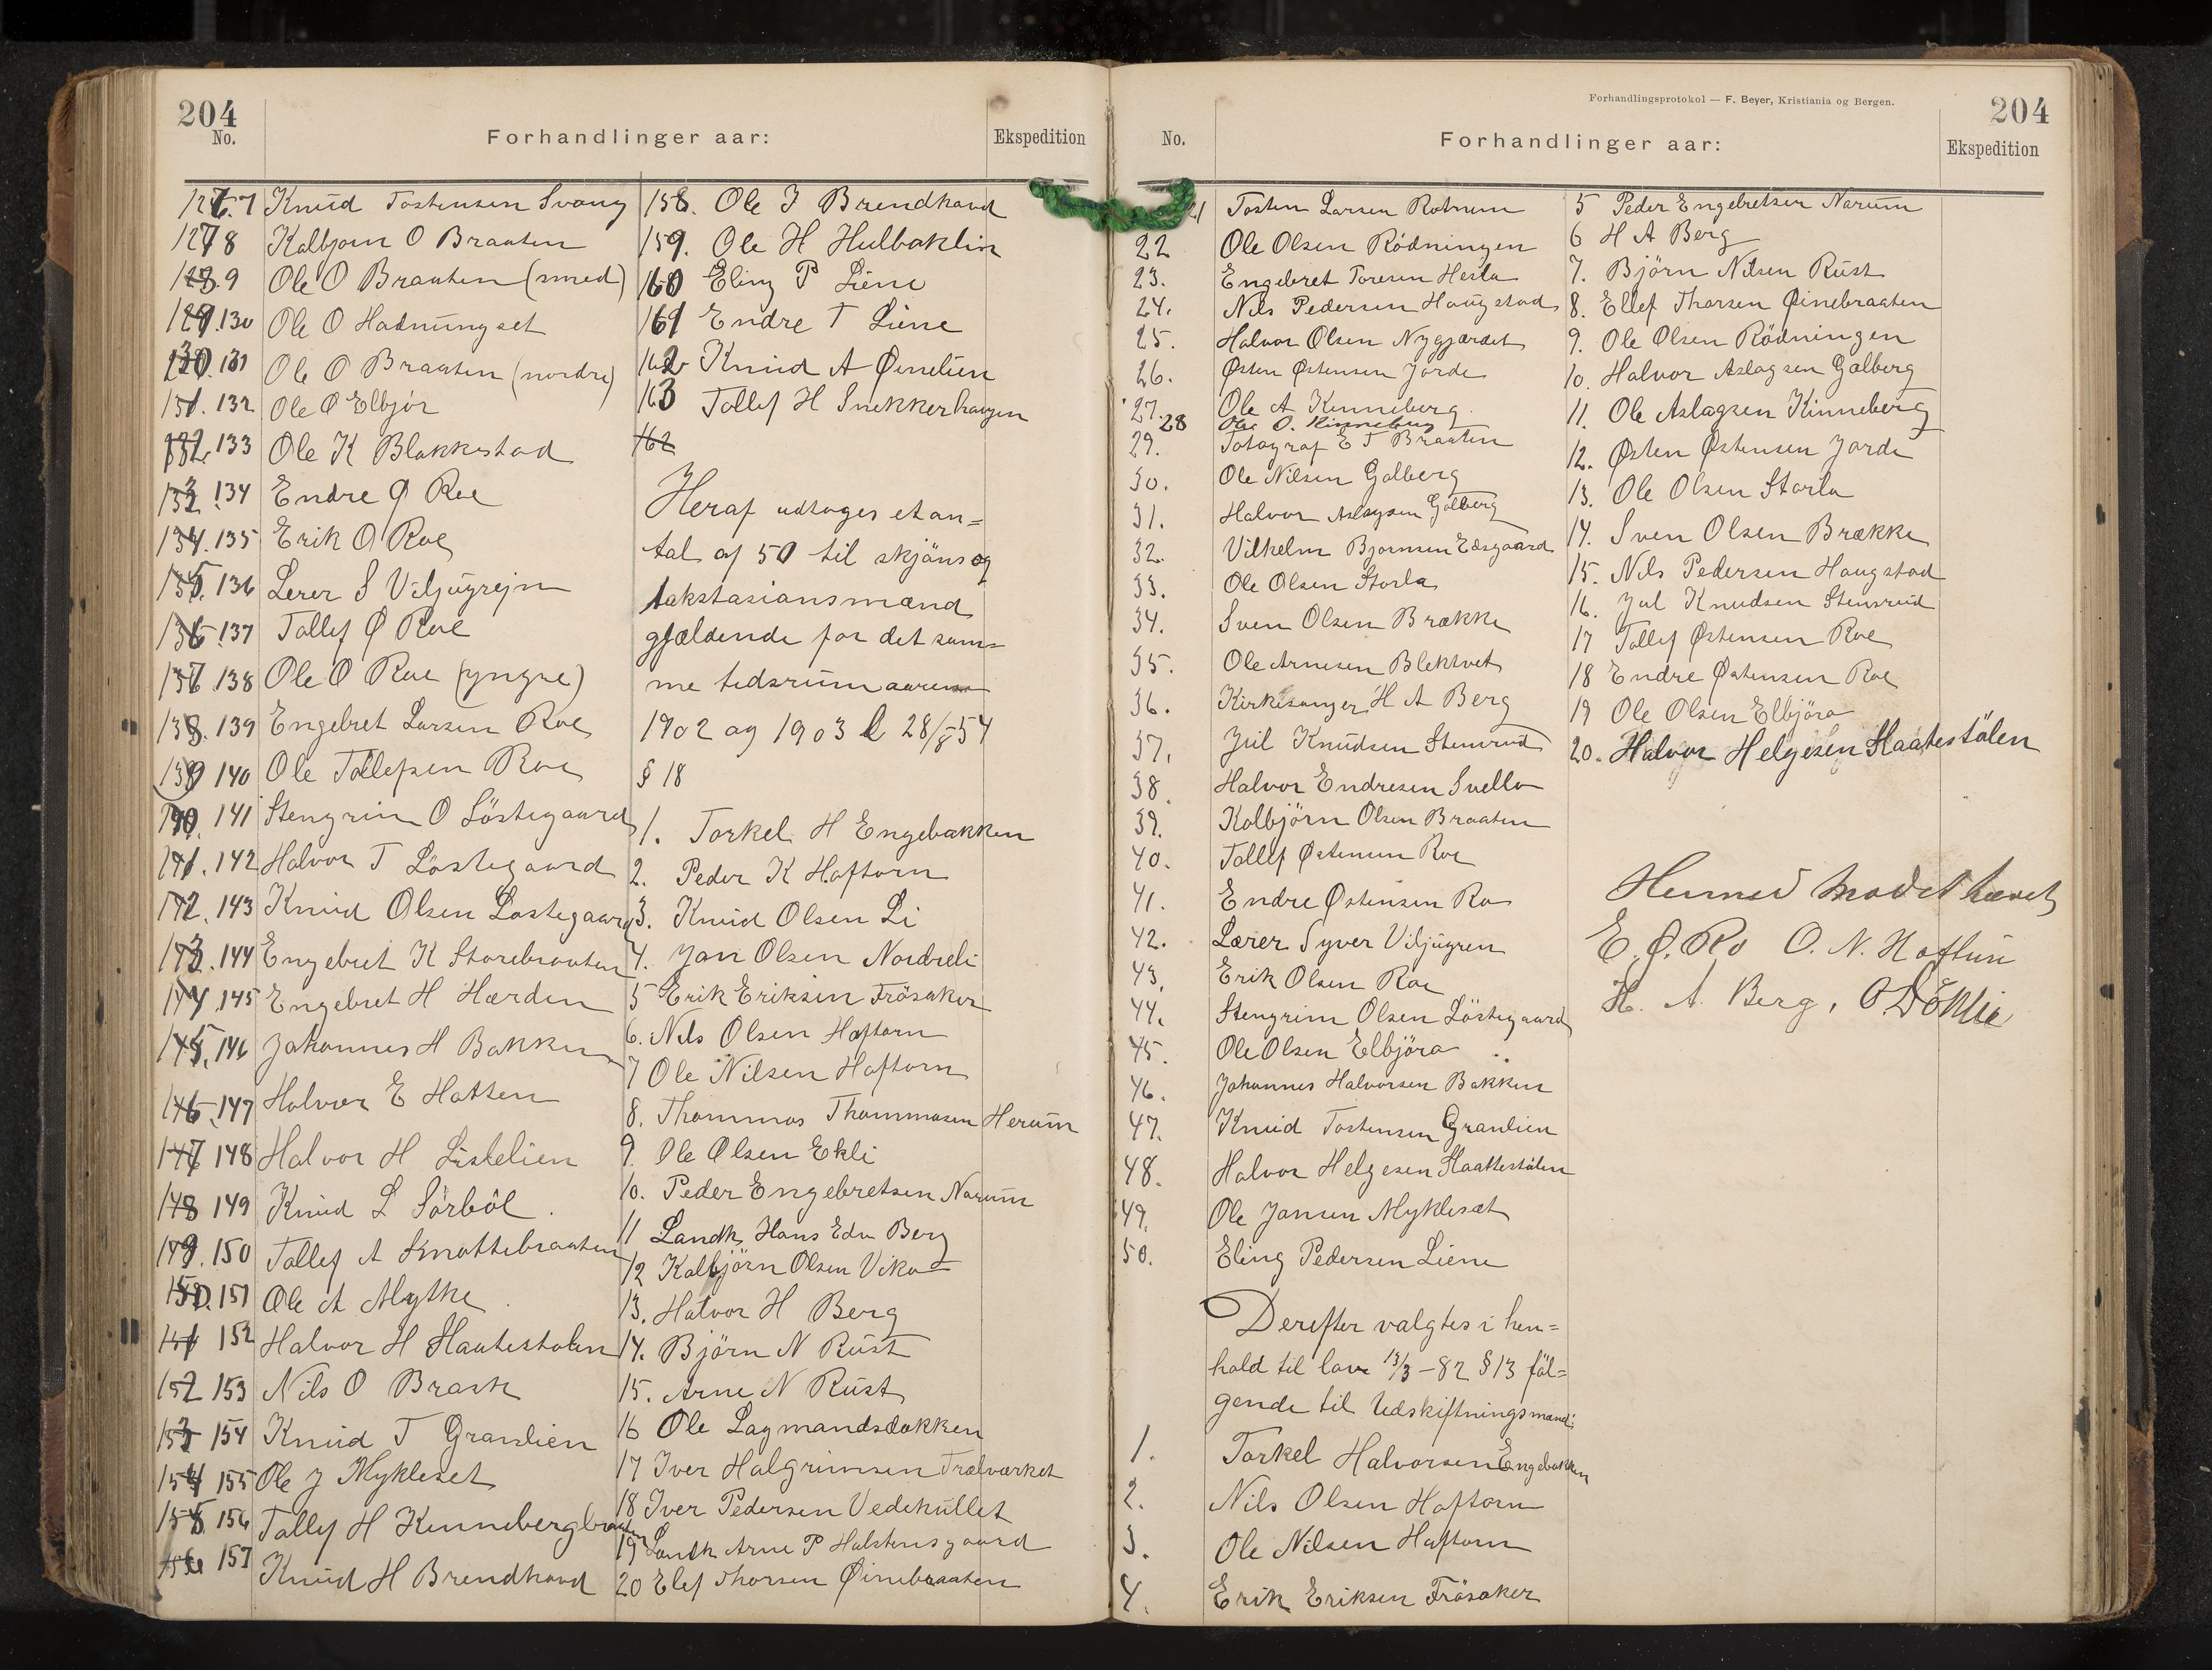 204
No.
Forhandlinger aar:
Ekspedition
127 Knud Tostensen Svang
128 Kolbjørn O Braaten
129 Ole O Braaten (smed)
130 Ole O Hadnungset
131 Ole O Braaten (nordre)
132 Ole O Elbjör
133 Ole K Blakkestad
134 Endre Ø Roe
135 Erik O Roe
136 Lerer S Viljugrejn
137 Tollef Ø Roe
138 Ole O Roe (yngre)
139 Engebret Larsen Roe
140 Ole Tollefsen Roe
141 Stengrim O Löstegaard
142 Halvor T Löstegaard
143 Knud Olsen Lostegaard
144 Engebret K Storebraaten
145 Engebret H Hærden
146 Johannes H Bakken
147 Halvor E Hatten
148 Halvor H Listelien
149 Knud L Sörböl
150 Tollef A Smattebraaten
151 Ole A Myhke
152 Halvor H Slaatestolen
153 Nils O Brask
154 Knud T Granlien
155 Ole J Mykleset
156 Tollef H Kennebergbraaten
157 Knud H Brendhovd
158. Ole J Brendhovd
159. Ole H Hulbaklin
160 Eling P Liene
161 Endre T Liene
162 Knud A Ømelien
163 Tollef H Snekkerhaugen
162
Heraf udtoges et an=
tal af 50 til skjöns og
takstasionsmænd
gjældende for det sam=
me tidsrum aarene
1902 og 1903 l 28/8 54
§ 18
1. Torkel H Engebakken
2. Peder K Haftorn
3. Knud Olsen Li
4. Jon Olsen Nordreli
5 Erik Eriksen Frösaker
6. Nils Olsen Haftorn
7 Ole Nilsen Haftorn
8. Thommas Thommasen Herum
9. Ole Olsen Ekli
10. Peder Engebretsen Narum
11 Landh. Hans Edv Berg
12 Kolbjörn Olsen Viko
13. Halvor H Berg
14. Björn N Rust
15. Arne N Rust
16 Ole Lagmandsdokken
17 Iver Halgrimsen Trælværket
18 Iver Pedersen Vedekullet
19 Landh Arne P Halstensgaard
20 Elef Thorsen Øinebraaten
Forhandlingsprotokol — F. Beyer, Kristiania og Bergen.
204
No.
Forhandlinger aar:
Ekspedition
21 Tosten Larsen Rotnem
22 Ole Olsen Rödningen
23. Engebret Toresen Hesla
24. Nils Pedersen Haugstad
25. Halvor Olsen Nygjærdet
26. Østen Østensen Jorde
27. Ole A Kinneberg
28 Ole O. Kinneberg
29. Fotograf E T Braaten
30. Ole Nilsen Golberg
31. Halvor Aslagsen Golberg
32. Vilhelm Bjornsen Edsgaard
33. Ole Olsen Storla
34. Sven Olsen Brække
35. Ole Arnesen Blektvet
36. Kirkesanger H A Berg
37. Jul Knudsen Stensrud
38. Halvor Endresen Svello
39. Kolbjörn Olsen Braaten
40. Tollef Østensen Roe
41. Endre Østensen Ro
42. Lærer Syver Viljugren
43. Erik Olsen Roe
44. Stengrim Olsen Löstegaard
45. Ole Olsen Elbjöra
46. Johannes Halvorsen Bakken
47. Knud Tostensen Granlien
48. Halvor Helgesen Slaattestölen
49. Ole Jonsen Myklesæt
50. Eling Pedersen Liene
Derefter valgtes i hen=
hold til lov 13/3 - 82 § 13 föl=
gende til Udskiftningsmænd:
1. Torkel Halvorsen Engebakken
2. Nils Olsen Haftorn
3. Ole Nilsen Haftorn
4. Erik Eriksen Frösaker
5 Peder Engebretsen Narum
6 H A Berg
7. Björn Nilsen Rust
8. Ellef Thorsen Øinebraaten
9. Ole Olsen Rödningen
10. Halvor Aslagsen Golberg
11. Ole Aslagsen Kinneberg
12. Østen Østensen Jorde
13. Ole Olsen Storla
14. Sven Olsen Brække
15. Nils Pedersen Haugstad
16. Jul Knudsen Stensrud
17 Tollef Østensen Roe
18 Endre Østensen Roe
19 Ole Olsen Elbjöra
20. Halvor Helgesen Slaatestölen
Hermed mödet hævet
E. Ø. Ro O. N. Haftun
H. A. Berg, O Döhlie